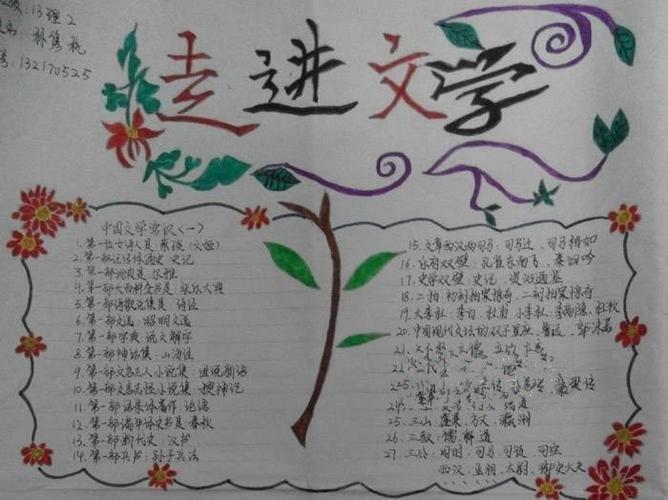 班级:13理2
姓名:孙隽杭
号:132170525
走进文学
中国文学常识<一>
1.第一位女诗人是:蔡琰(文姬)
2.第一部纪传体通史:史记
3.第一部词典是:尔雅
4.第一部大百科全书是:永乐大典
5.第一部诗歌总集是:诗经
6.第一部文选:昭明文选
7.第一部字典:说文解字
8.第一部神话集:山海经
9.第一部文言志人小说集:世说新语
10.第一部文言志怪小说集:搜神记
11.第一部语录体著作:论语
12.第一部编年体史书是:春秋
13.第一部断代史:汉书
14.第一部兵书:孙子兵法
15.文章西汉两司马:司马迁、司马相如
16.乐府双璧:孔雀东南飞、秦妇吟
17.史学双璧:史记、资治通鉴
18.二拍:初刻拍案惊奇、二刻拍案惊奇
19.大李杜:李白、杜甫 小李杜:李商隐、杜牧
20.中国现代文坛的双子星座:鲁迅、郭沫若
21.
25.三山:蓬莱、方丈、瀛洲
26.三教:儒、释、道
27.三公:周朝:司马、司徒、司空
西汉:丞相、太尉、御史大夫